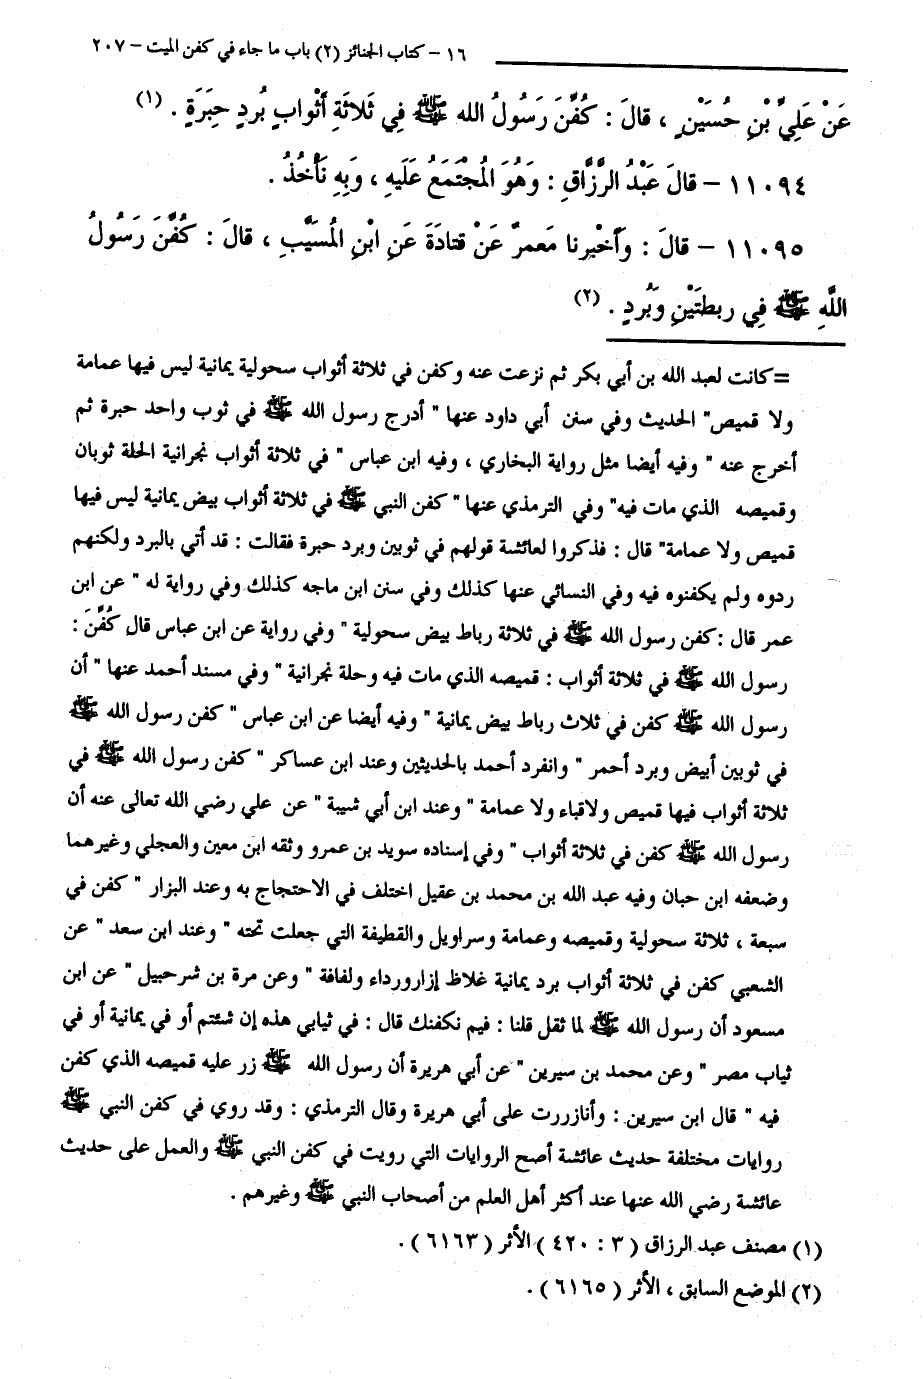 ١٦ – كتاب الجنائز (٢) باب ما جاء في كفن الميت – ٢٠٧
عَنْ عَلِيِّ بْنِ حُسَيْنٍ ، قالَ : كُفِّنَ رَسُولُ الله ﷺ فِي ثَلاثَةِ أَثْوابٍ بُردٍ حِبَرَةٍ . (١)
١١٠٩٤ – قالَ عَبْدُ الرَّزَّاقِ : وَهُوَ الْمُجْتَمَعُ عَلَيهِ ، وَبِهِ نَأْخُذُ .
١١٠٩٥ – قالَ : وأَخْبرنا مَعمرٌ عَنْ قتادَةَ عَنِ ابْنِ المُسَيَّبِ ، قالَ : كُفِّنَ رَسُولُ
اللَّهِ ﷺ فِي ريطتَيْنِ وَبُردٍ . (٢)
=كانت لعبد الله بن أبي بكر ثم نزعت عنه وكفن في ثلاثة أثواب سحولية يمانية ليس فيها عمامة
ولا قميص" الحديث وفي سنن أبي داود عنها " أدرج رسول الله ﷺ في ثوب واحد حبرة ثم
أخرج عنه " وفيه أيضا مثل رواية البخاري ، وفيه ابن عباس " في ثلاثة أثواب نجرانية الحلة ثوبان
وقميصه الذي مات فيه" وفي الترمذي عنها " كفن النبي ﷺ في ثلاثة أثواب بيض يمانية ليس فيها
قميص ولا عمامة" قال : فذكروا لعائشة قولهم في ثوبين وبرد حبرة فقالت : قد أتي بالبرد ولكنهم
ردوه ولم يكفنوه فيه وفي النسائي عنها كذلك وفي سنن ابن ماجه كذلك وفي رواية له " عن ابن
عمر قال :كفن رسول الله ﷺ في ثلاثة رباط بيض سحولية " وفي رواية عن ابن عباس قال كُفِّنَ :
رسول الله ﷺ في ثلاثة أثواب : قميصه الذي مات فيه وحلة نجرانية " وفي مسند أحمد عنها " أن
رسول الله ﷺ كفن في ثلاث رباط بيض يمانية " وفيه أيضا عن ابن عباس " كفن رسول الله ﷺ
في ثوبين أبيض وبرد أحمر " وانفرد أحمد بالحديثين وعند ابن عساكر " كفن رسول الله ﷺ في
ثلاثة أثواب فيها قميص ولاقباء ولا عمامة " وعند ابن أبي شيبة " عن علي رضي الله تعالى عنه أن
رسول الله ﷺ كفن في ثلاثة أثواب " وفي إسناده سويد بن عمرو وثقه ابن معين والعجلي وغيرهما
وضعفه ابن حبان وفيه عبد الله بن محمد بن عقيل اختلف في الاحتجاج به وعند البزار " كفن في
سبعة ، ثلاثة سحولية وقميصه وعمامة وسراويل والقطيفة التي جعلت تحته " وعند ابن سعد " عن
الشعبي كفن في ثلاثة أثواب برد يمانية غلاظ إزارورداء ولفافة " وعن مرة بن شرحبيل " عن ابن
مسعود أن رسول الله ﷺ لما ثقل قلنا : فيم نكفنك قال : في ثيابي هذه إن شئتم أو في يمانية أو في
ثياب مصر " وعن محمد بن سيرين " عن أبي هريرة أن رسول الله ﷺ زر عليه قميصه الذي كفن
فيه " قال ابن سيرين : وأنازررت على أبي هريرة وقال الترمذي : وقد روي في كفن النبي ﷺ
روايات مختلفة حديث عائشة أصح الروايات التي رويت في كفن النبي ﷺ والعمل على حديث
عائشة رضي الله عنها عند أكثر أهل العلم من أصحاب النبي ﷺ وغيرهم .
(١) مصنف عبد الرزاق ( ٣ : ٤٢٠ ) الأثر ( ٦١٦٣ ) .
(٢) الموضع السابق ، الأثر ( ٦١٦٥ ) .